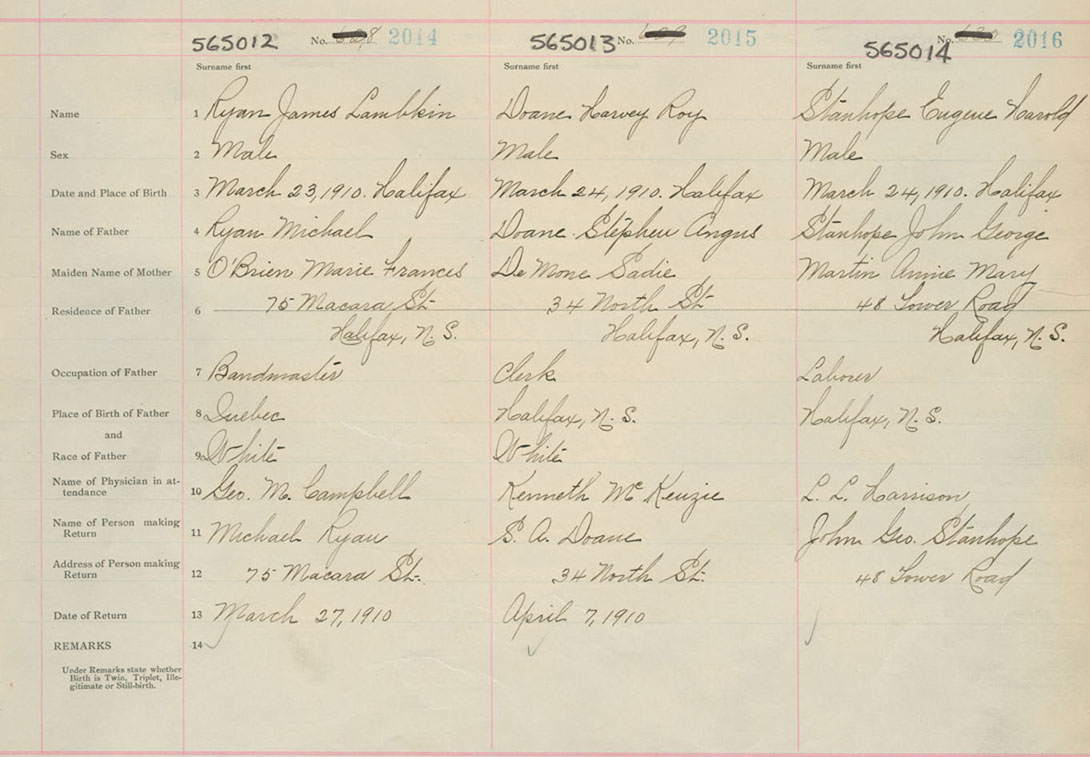 565012 No. 2014 565013 No. 2015 565014 No. 2016
Surname first Surname first Surname first
Name 1 Ryan James Lambkin Doane Harvey Roy Stanhope Eugene Harold
Sex 2 Male Male Male
Date and Place of Birth 3 March 23, 1910. Halifax March 24, 1910. Halifax March 24, 1910. Halifax
Name of Father 4 Ryan Michael Doane Stephen Angus Stanhope John George
Maiden Name of Mother 5 O'Brien Marie Frances De Mone Sadie Martin Annie Mary
Residence of Father 6 75 Macara St. 34 North St. 48 Lower Road
Halifax, N.S. Halifax, N.S. Halifax, N.S.
Occupation of Father 7 Bandmaster Clerk Labourer
Place of Birth of Father 8 Quebec Halifax, N.S. Halifax, N.S.
and
Race of Father 9 White White
Name of Physician in at-
tendance 10 Geo. M. Campbell Kenneth McKenzie L. L. Harrison
Name of Person making
Return 11 Michael Ryan S. A. Doane John Geo. Stanhope
Address of Person making
Return 12 75 Macara St. 34 North St. 48 Lower Road
Date of Return 13 March 27, 1910 April 7, 1910
REMARKS 14
Under Remarks state whether
Birth is Twin, Triplet, Ille-
gitimate or Still-birth.